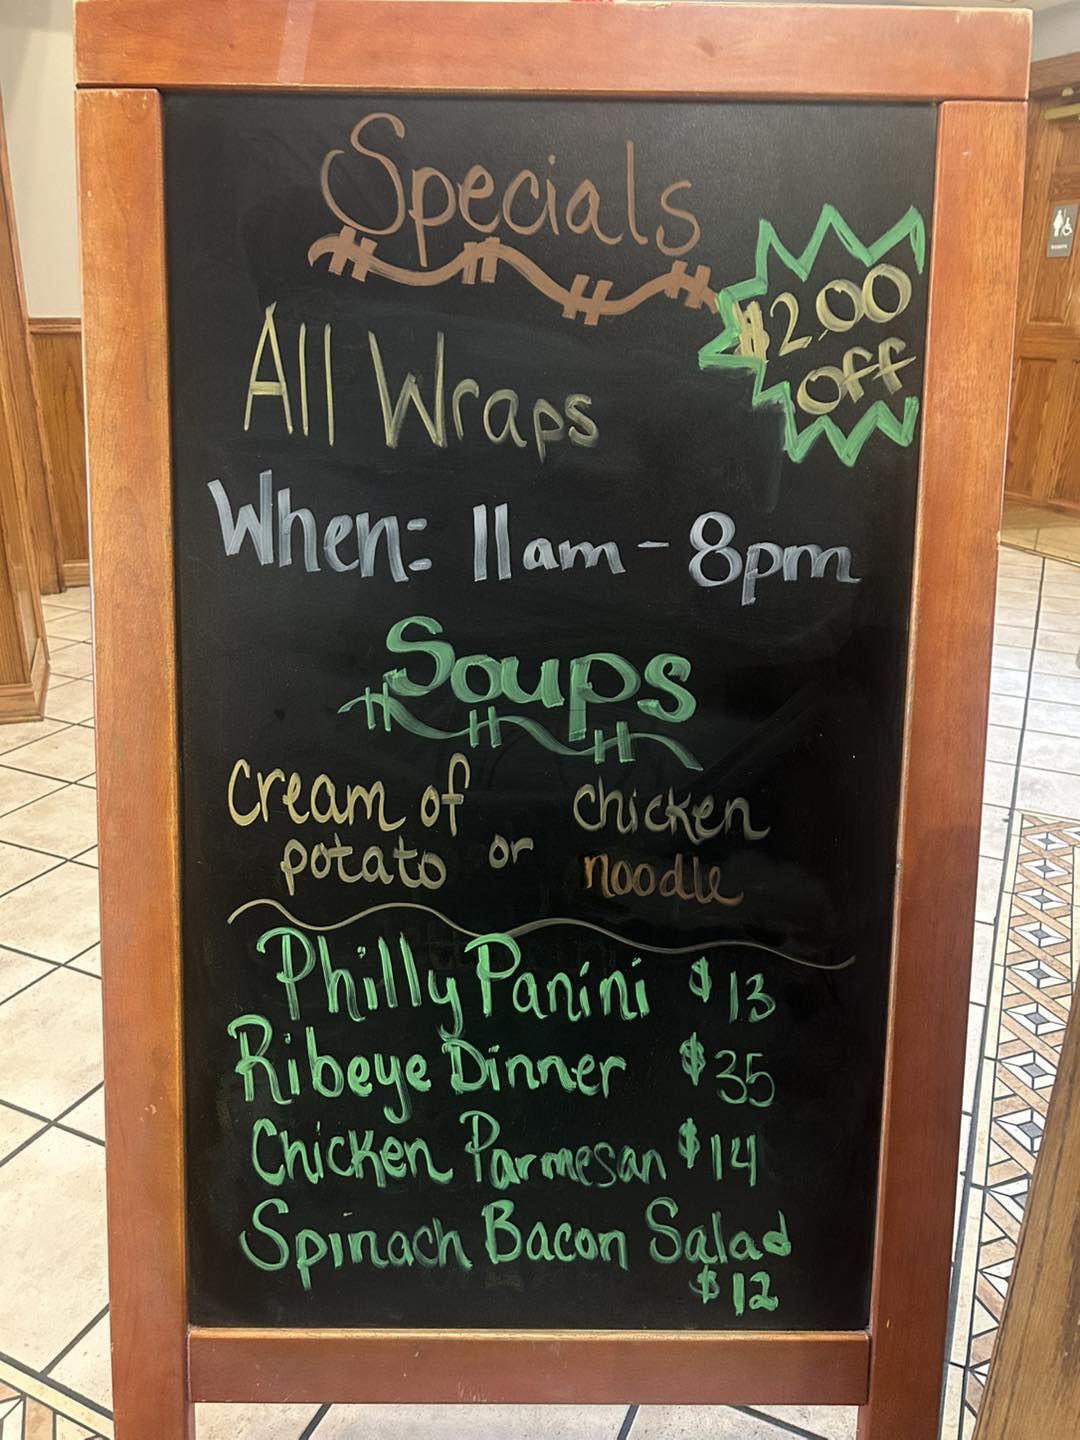 Specials
$2.00
off
All Wraps
When: 11am - 8pm
Soups
cream of
potato
or
chicken
noodle
Philly Panini $13
Ribeye Dinner $35
Chicken Parmesan $14
Spinach Bacon Salad
$12